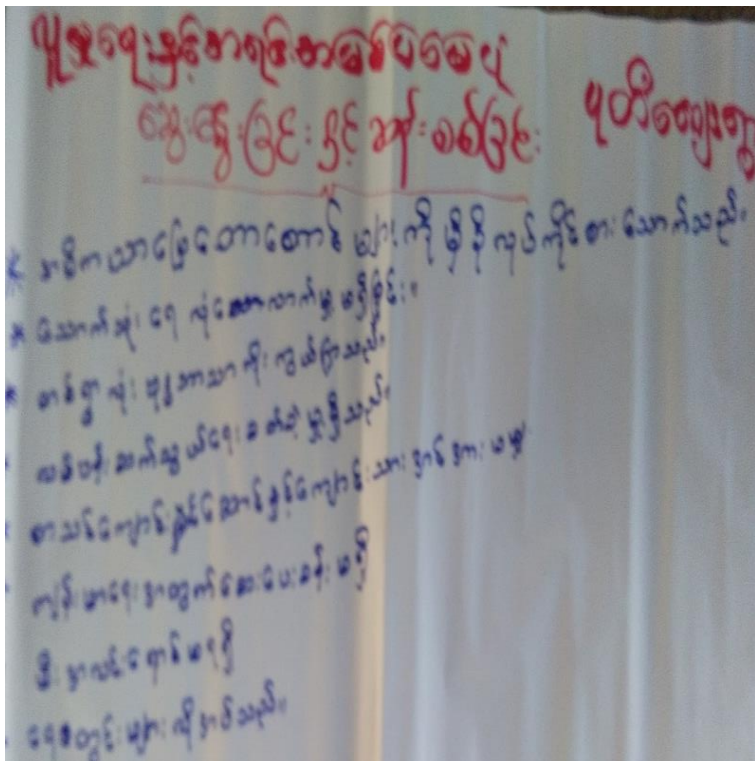 လူမှုရေးနှင့်စာရင်းစာမစ်ပမေပုံ
ဆွေးနွေးခြင်းနှင့်ဆန်းစစ်ခြင်း
* အဓိကယာမြေတောတောင်များကိုမှီခိုလုပ်ကိုင်စားသောက်သည်။
* သောက်သုံးရေလုံလောက်မှုမရှိခြင်း။
* တစ်ရွာလုံးဗုဒ္ဓဘာသာကိုးကွယ်ကြသည်။
လမ်းပန်းဆက်သွယ်ရေးခတ်ခဲမှုရှိသည်။
စာသင်ကျောင်းနှင့်ကျောင်းသားအင်အားမမျှ
ကျန်းမာရေးအတွက်ဆေးပေးခန်းမရှိ
မီးအလင်းရောင်မရရှိ
ရေတွင်းများလိုအပ်သည်။